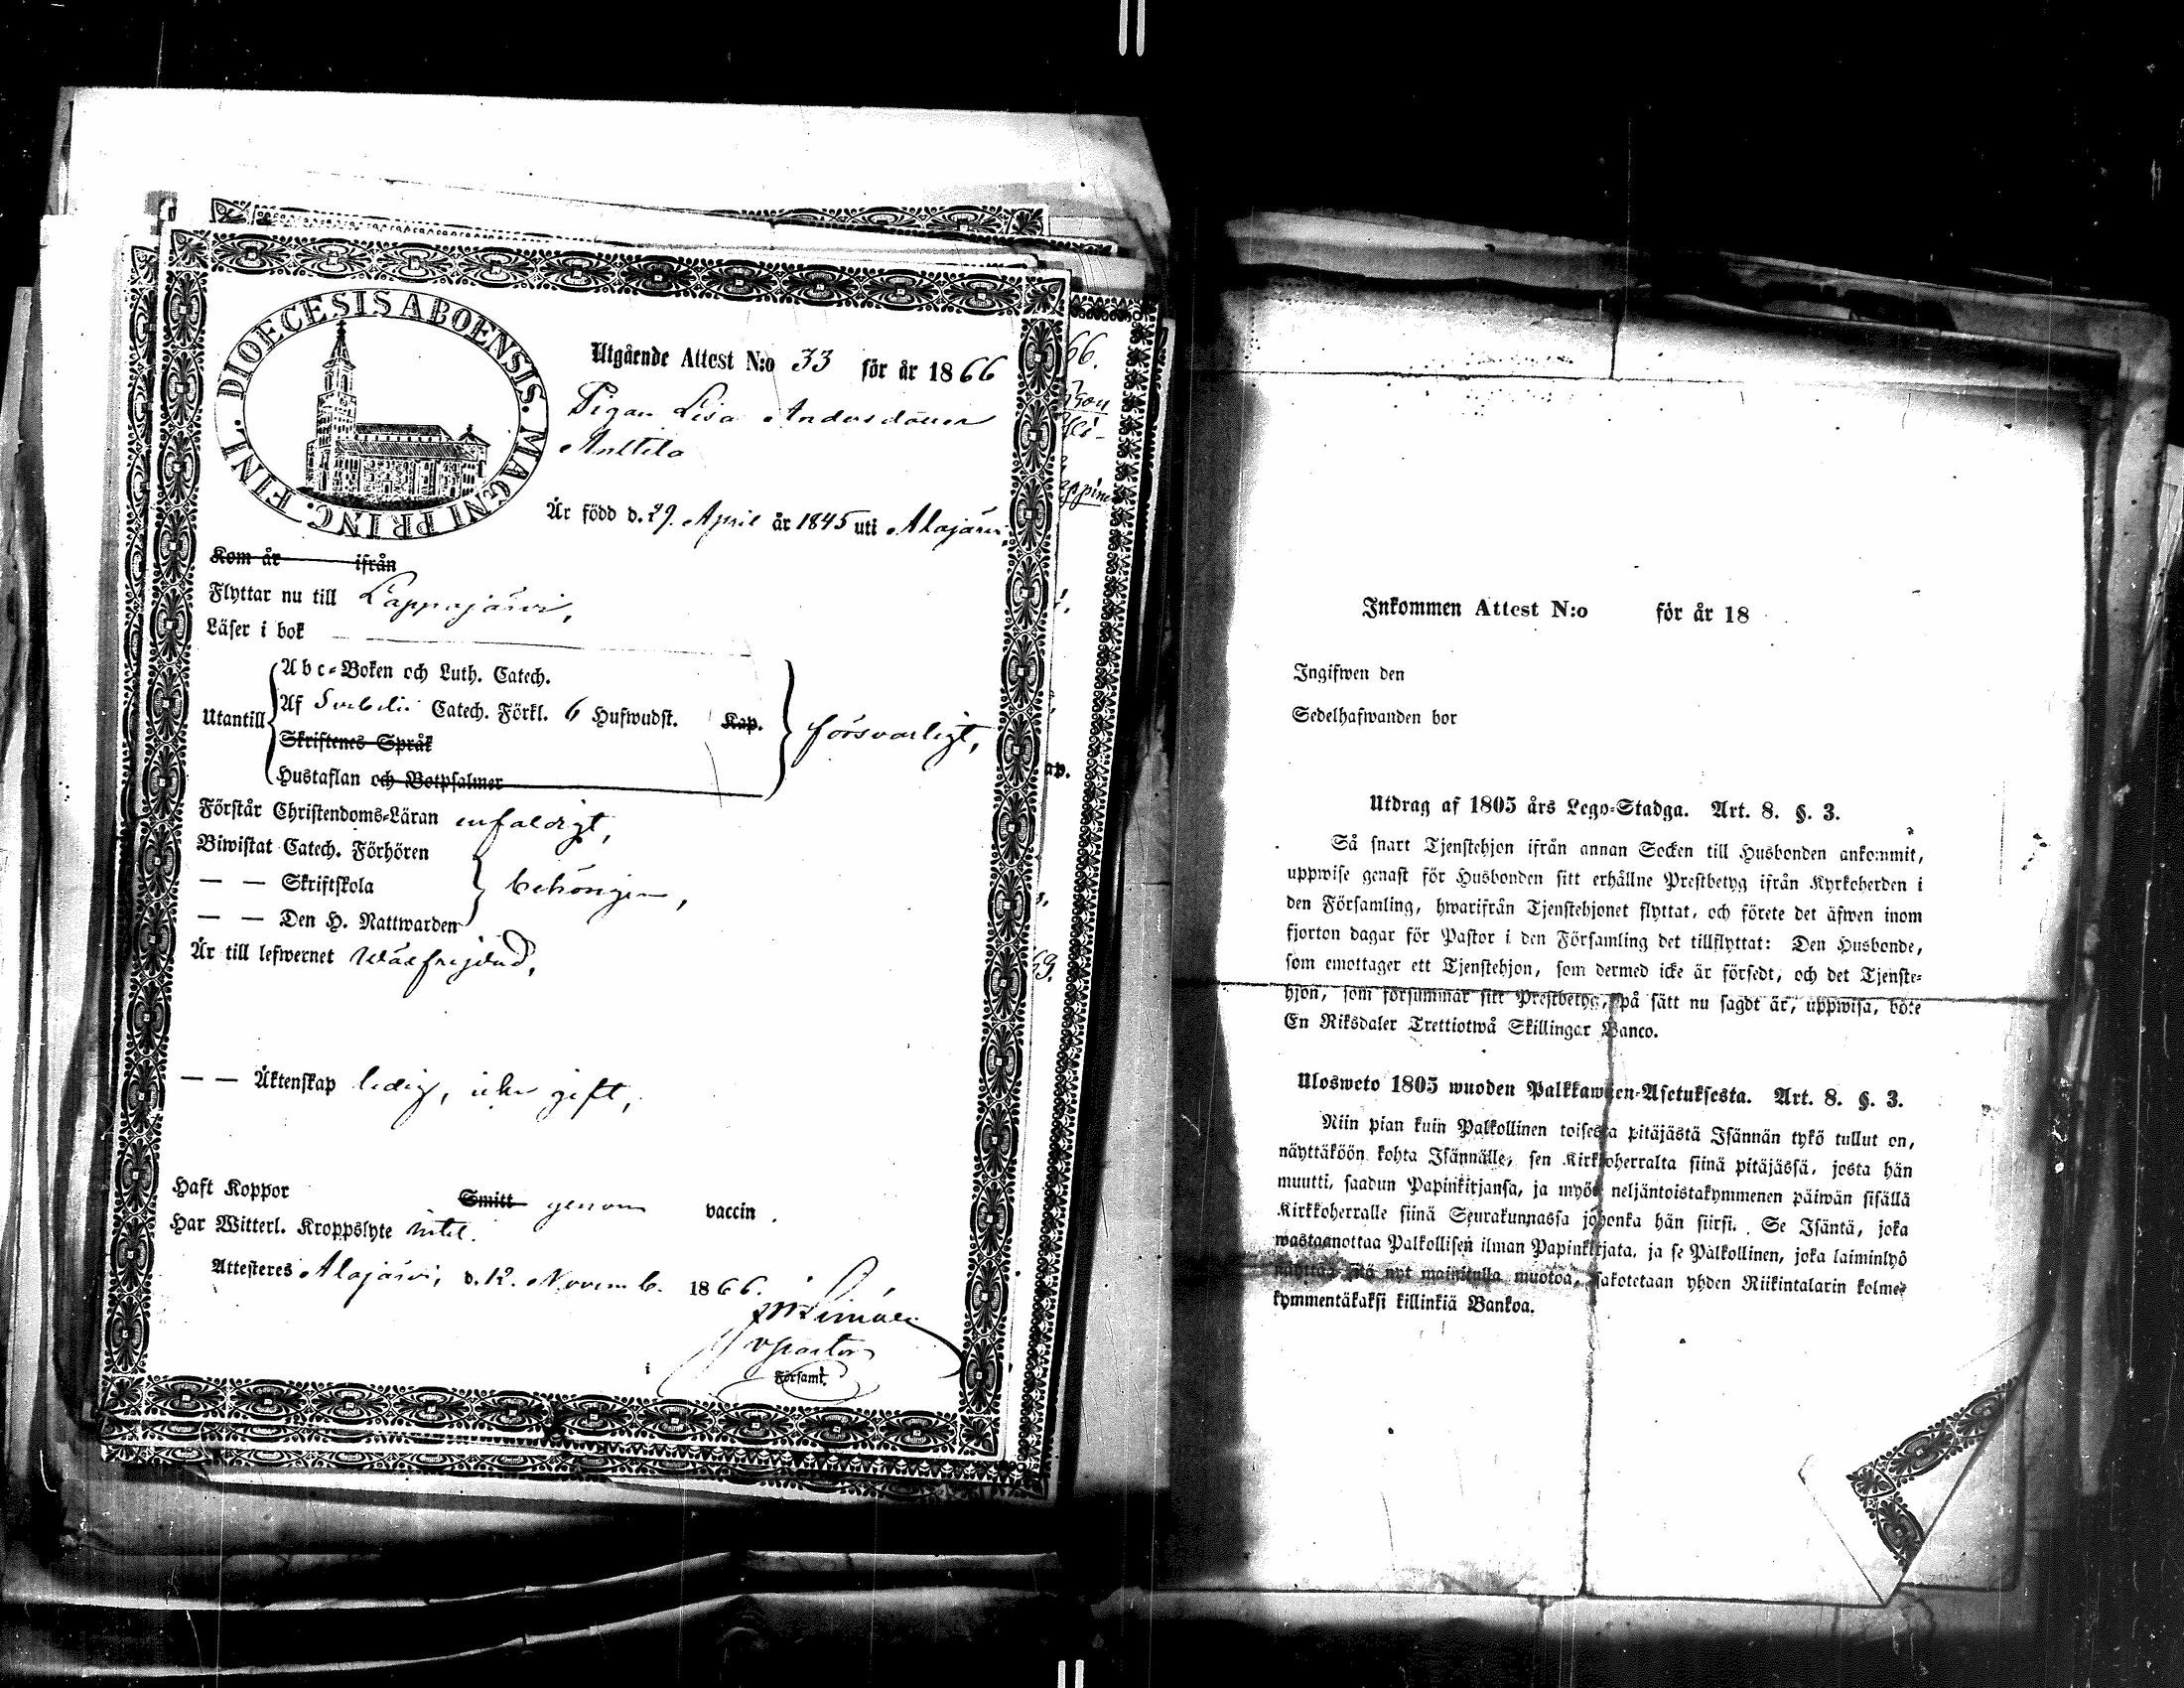 DIOECESIS ABOENSIS. MAGNI PRINC. FINL.
Utgående Attest N:o 33 för år 1866
Pigan Lisa Andersdotter
Anttila
Är född d. 29. April år 1845 uti Alajärvi,
Kom år ifrån
Flyttar nu till Lappajärvi,
Läser i bok
Utantill
Abc-Boken och Luth. Catech.
Af Svebelii Catech. Förkl. 6 Hufwudst. Kap.
Skriftenes Språk
Hustaflan och Botpsalmer
försvarligt,
Förstår Christendoms-Läran enfaldigt,
Biwistat Catech. Förhören
— — Skriftskola
— — Den H. Nattwarden
behörigen,
Är till lefwernet wälfrejdad,
— — Äktenskap ledig, icke gift,
Haft Koppor Smitt genom vaccin.
Har Witterl. Kroppslyte intet.
Attesteres Alajärvi, d. 12. Novemb. 1866.
v pastor
i Församl.
66.
ap.
Inkommen Attest N:o för år 18
Ingifwen den
Sedelhafwanden bor
Utdrag af 1805 års Lego-Stadga. Art. 8. §. 3.
Så snart Tjenstehjon ifrån annan Socken till Husbonden ankommit,
uppwise genast för Husbonden sitt erhållne Prestbetyg ifrån Kyrkoherden i
den Församling, hwarifrån Tjenstehjonet flyttat, och förete det äfwen inom
fjorton dagar för Pastor i den Församling det tillflyttat: Den Husbonde,
som emottager ett Tjenstehjon, som dermed icke är försedt, och det Tjenste-
hjon, som försummar sitt Prestbetyg, på sätt nu sagdt är, uppwisa, böte
En Riksdaler Trettiotwå Skillingar Banco.
Ulosweto 1805 wuoden Palkkawäen-Asetuksesta. Art. 8. §. 3.
Niin pian kuin Palkollinen toisesta pitäjästä Isännän tykö tullut on,
näyttäköön kohta Isännälle, sen Kirkkoherralta siinä pitäjässä, josta hän
muutti, saadun Papinkirjansa, ja myös neljäntoistakymmenen päiwän sisällä
Kirkkoherralle siinä Seurakunnassa johonka hän siirsi. Se Isäntä, joka
wastaanottaa Palkollisen ilman Papinkirjata, ja se Palkollinen, joka laiminlyö
näyttää sitä nyt mainitulla muotoa, sakotetaan yhden Riikintalarin kolme-
kymmentäkaksi killinkiä Bankoa.